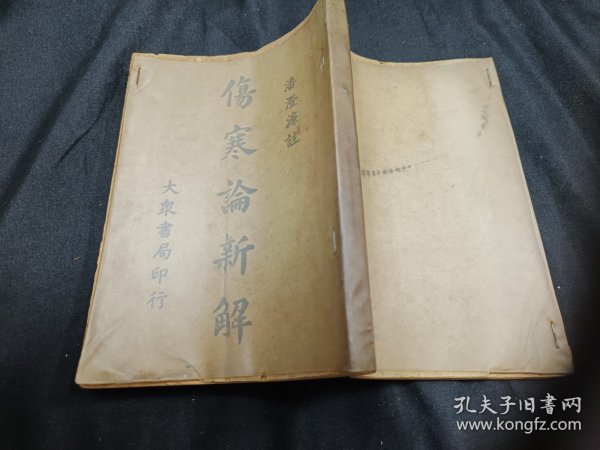 潘澄濂註
傷寒論新解
大衆書局印行
孔夫子旧書网
www.kongfz.com